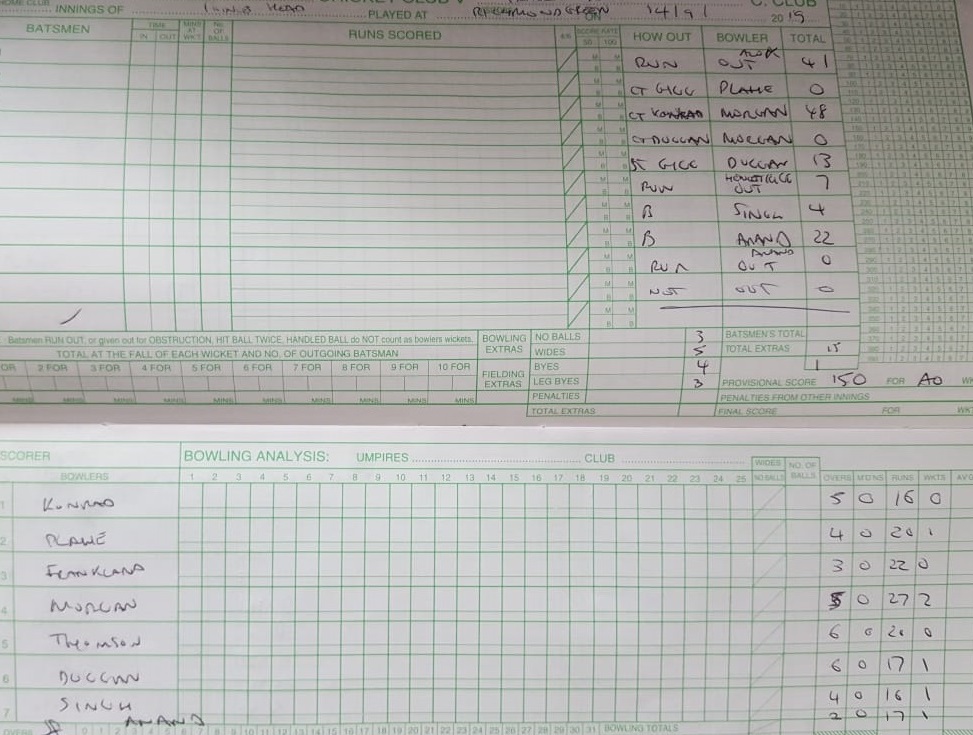 INNINGS OF
PLAYED AT RICHMOND GREEN ON 14/9/ 2019
C. CLUB
BATSMEN TIME IN OUT MINS AT WKT NO. OF BALLS RUNS SCORED 6/S SCORE RATE 50 100 HOW OUT BOWLER TOTAL
RUN OUT 41
CT GILL PLANE 0
CT KONRAD MORGAN 48
CT DUGGAN MORGAN 0
ST GILL DUGGAN 13
RUN OUT 7
B SINGH 4
B ANAND 22
RUN OUT ANAND 0
NOT OUT 0
Batsmen RUN OUT, or given out for OBSTRUCTION, HIT BALL TWICE, HANDLED BALL do NOT count as bowlers wickets.
TOTAL AT THE FALL OF EACH WICKET AND NO. OF OUTGOING BATSMAN
2 FOR 3 FOR 4 FOR 5 FOR 6 FOR 7 FOR 8 FOR 9 FOR 10 FOR
MINS MINS MINS MINS MINS MINS MINS MINS MINS
BOWLING EXTRAS
NO BALLS 3
WIDES 5
FIELDING EXTRAS
BYES 4
LEG BYES 3
PENALTIES
TOTAL EXTRAS
BATSMEN'S TOTAL
TOTAL EXTRAS 15
PROVISIONAL SCORE 150 FOR AO
PENALTIES FROM OTHER INNINGS
FINAL SCORE FOR WKT
SCORER BOWLING ANALYSIS: UMPIRES CLUB
BOWLERS 1 2 3 4 5 6 7 8 9 10 11 12 13 14 15 16 17 18 19 20 21 22 23 24 25 WIDES NO BALLS NO. OF BALLS OVERS MDNS RUNS WKTS
1 KONRAD 5 0 16 0
2 PLANE 4 0 20 1
3 FRANKLAND 3 0 22 0
4 MORGAN 5 0 27 2
5 THOMSON 6 0 20 0
6 DUGGAN 6 0 17 1
7 SINGH 4 0 16 1
8 ANAND 2 0 17 1
OVERS 0 1 2 3 4 5 6 7 8 9 10 11 12 13 14 15 16 17 18 19 20 21 22 23 24 25 26 27 28 29 30 31 BOWLING TOTALS